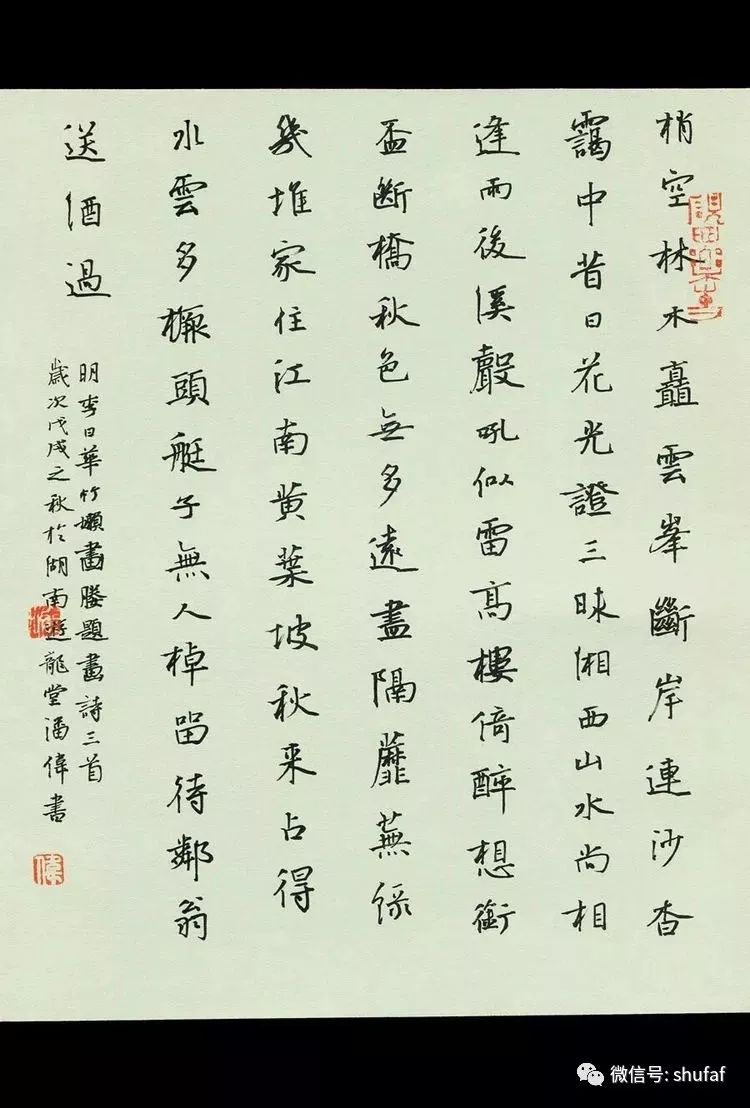 梢空林木矗雲峯斷岸連沙杳
靄中昔日花光證三昧湘西山水尚相
逢雨後溪聲吼似雷高樓倚醉想銜
盃斷橋秋色無多遠盡隔蘼蕪綠
幾堆家住江南黃葉坡秋来占得
水雲多橛頭艇子無人棹留待鄰翁
送酒過
明李日華竹嬾畫媵題畫詩三首
歲次戊戌之秋於湖南游龍堂潘偉書
偉
微信号: shufaf